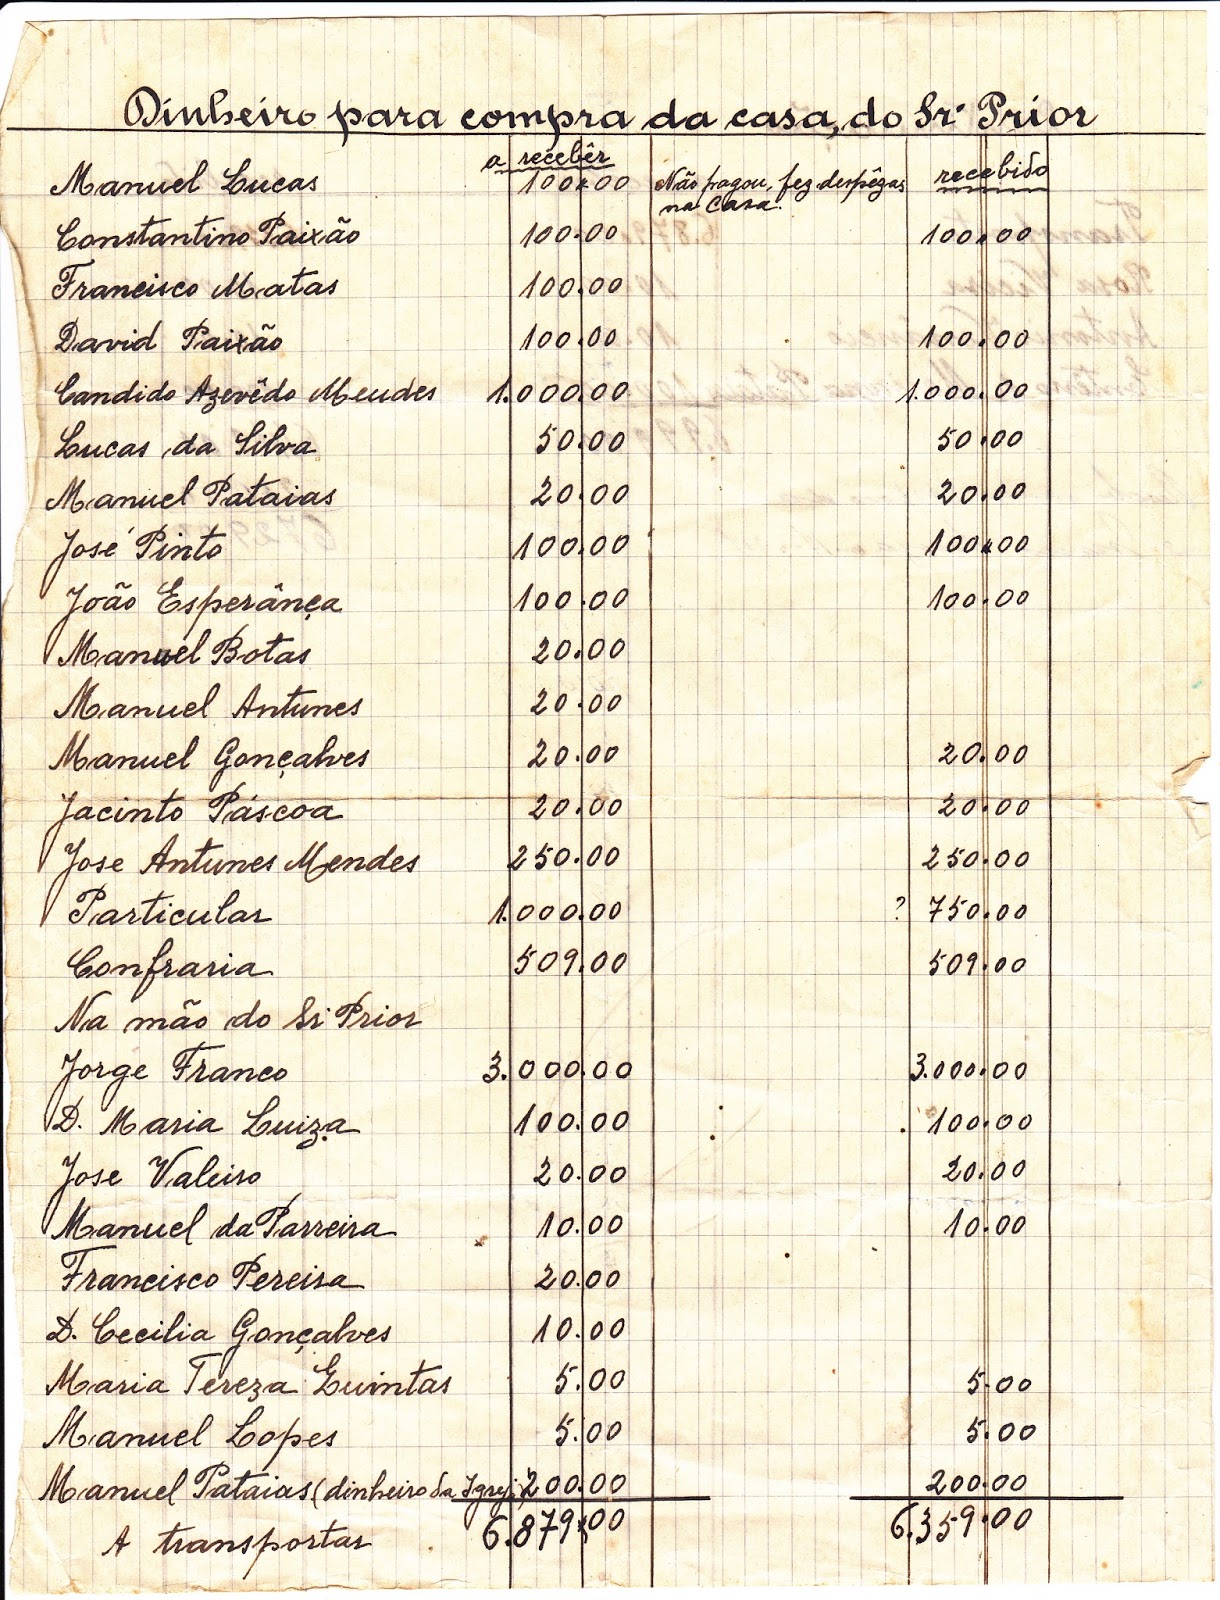 Dinheiro para compra da casa, do Sr. Prior
a recebêr recebido
Manuel Lucas 100.00 Não pagou, fez despêzas
na casa.
Constantino Paixão 100.00 100.00
Francisco Matas 100.00
David Paixão 100.00 100.00
Candido Azevêdo Mendes 1.000.00 1.000.00
Lucas da Silva 50.00 50.00
Manuel Pataias 20.00 20.00
José Pinto 100.00 100.00
João Esperânça 100.00 100.00
Manuel Botas 20.00
Manuel Antunes 20.00
Manuel Gonçalves 20.00 20.00
Jacinto Páscoa 20.00 20.00
Jose Antunes Mendes 250.00 250.00
Particular 1.000.00 ? 750.00
Confraria 509.00 509.00
Na mão do Sr. Prior
Jorge Franco 3.000.00 3.000.00
D. Maria Luiza 100.00 100.00
Jose Valeiro 20.00 20.00
Manuel da Parreira 10.00 10.00
Francisco Pereira 20.00
D. Cecilia Gonçalves 10.00
Maria Tereza Guintas 5.00 5.00
Manuel Lopes 5.00 5.00
Manuel Pataias (dinheiro da Igreja) 200.00 200.00
A transportar 6.879.00 6.359.00